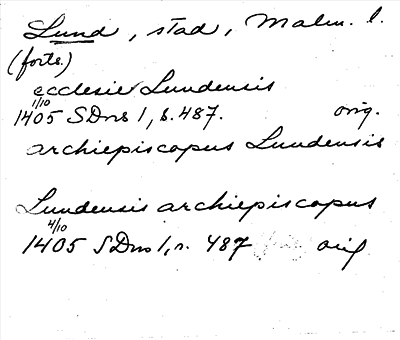 Lund, stad, Malm. l.
(forts.)
ecclesie Lundensis
1/10
1405 SDns 1, s. 487. orig.
archiepiscopus Lundensis
Lundensis archiepiscopus
4/10
1405 SDns 1, s. 487 orig